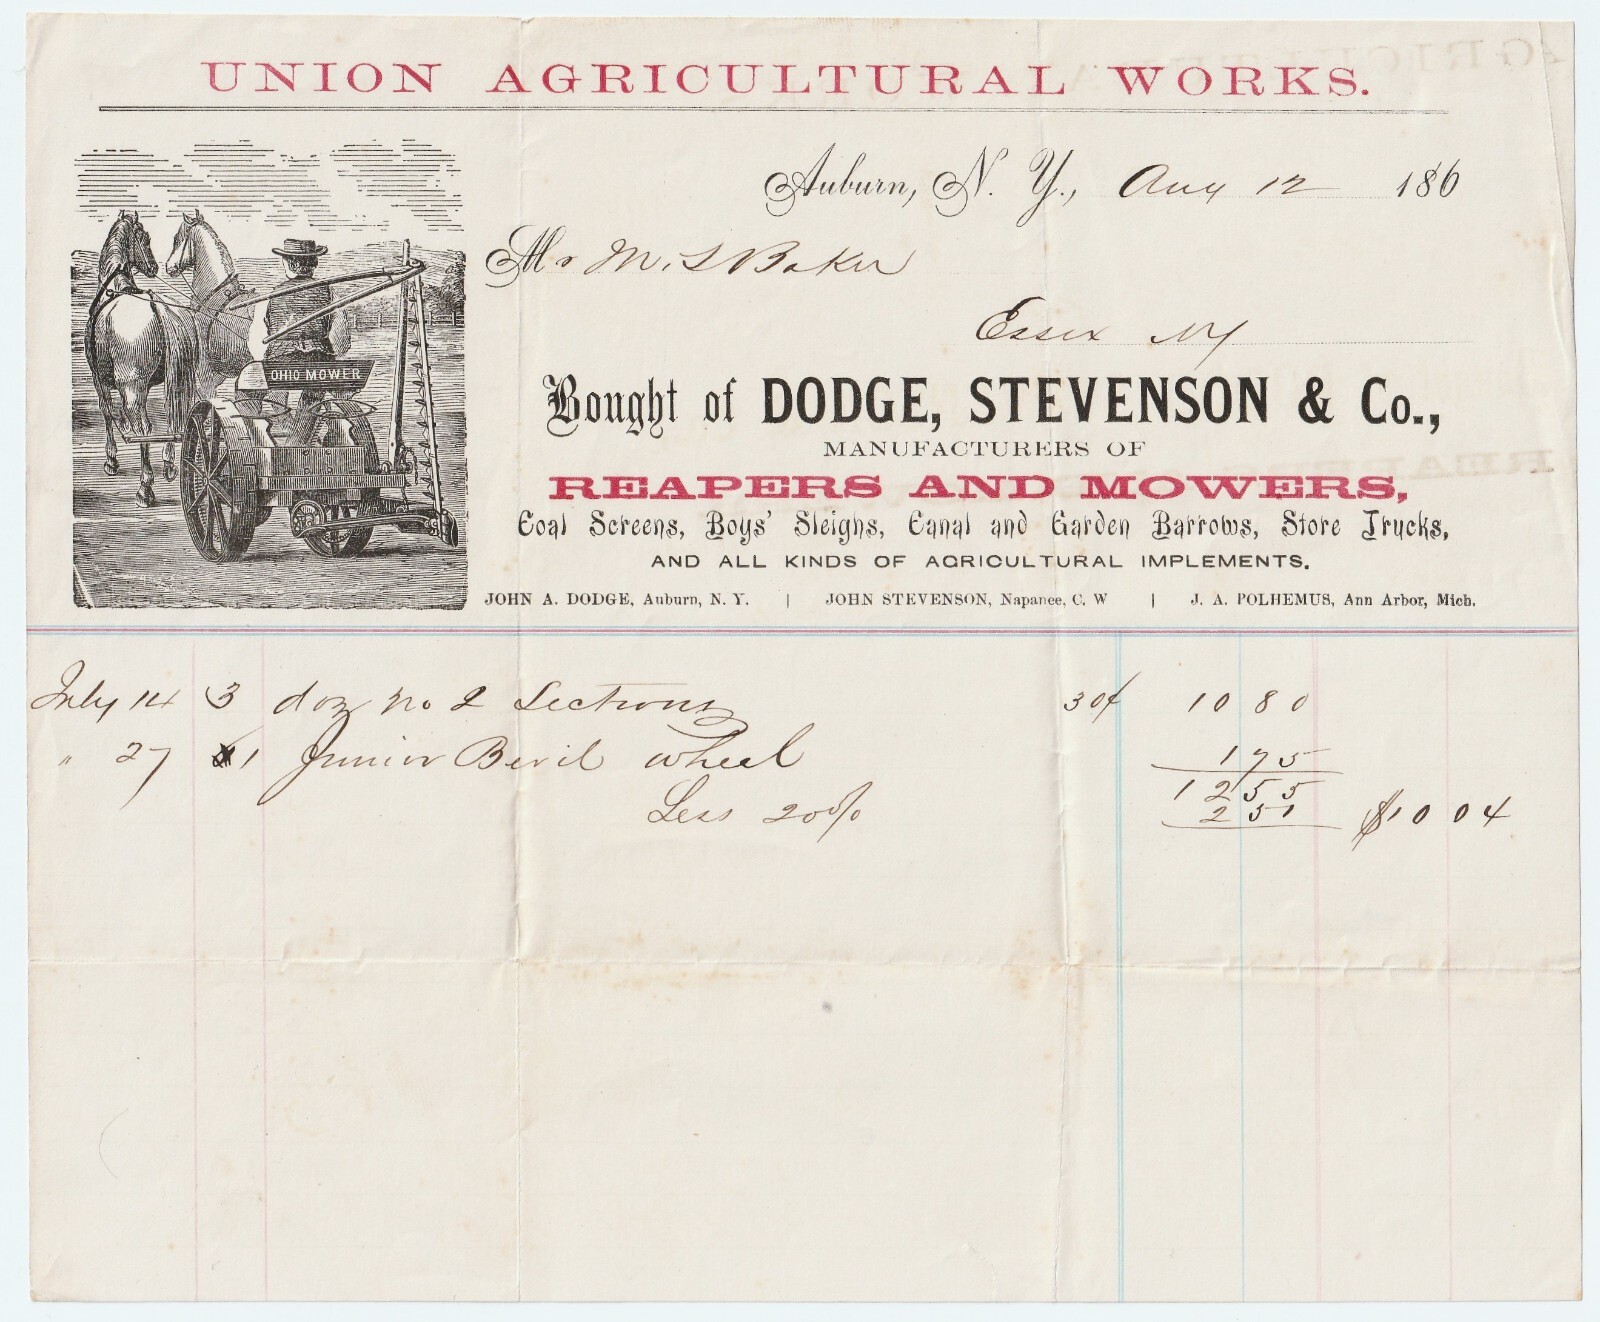 UNION AGRICULTURAL WORKS.
Auburn, N. Y., Aug 12 186
Mr M. S Baker
Essex NY
OHIO MOWER
Bought of DODGE, STEVENSON & Co.,
MANUFACTURERS OF
REAPERS AND MOWERS,
Coal Screens, Boys' Sleighs, Canal and Garden Barrows, Store Trucks,
AND ALL KINDS OF AGRICULTURAL IMPLEMENTS.
JOHN A. DODGE, Auburn, N. Y. | JOHN STEVENSON, Napanee, C. W | J. A. POLHEMUS, Ann Arbor, Mich.
July 14 3 doz no 2 Sections 30¢ 10 80
" 27 1 Junior Bevil wheel 1 75
12 55
Less 20% 2 51 $10 04